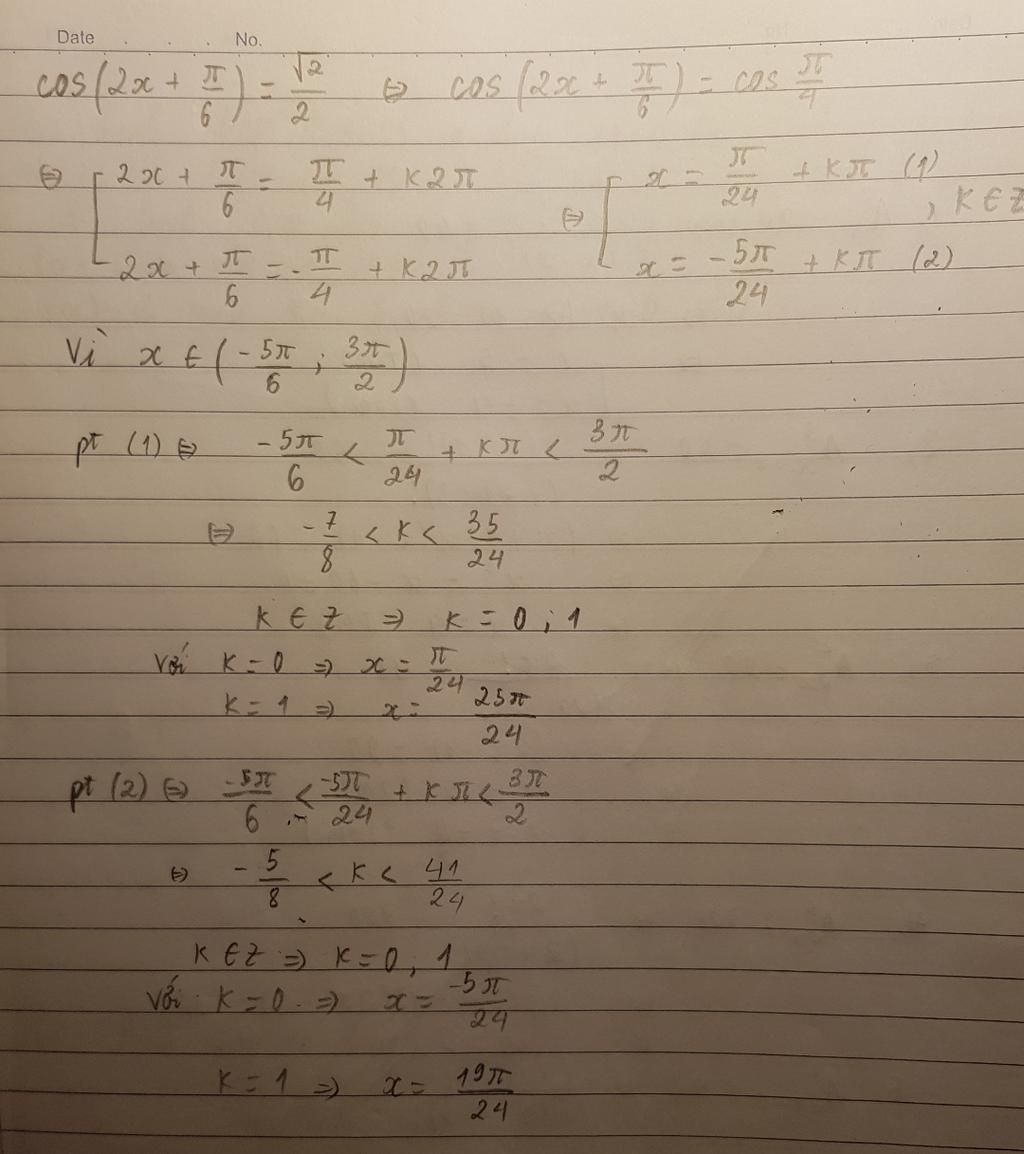 Date . . . No.
cos(2x + π/6) = √2/2 ⇔ cos(2x + π/6) = cos π/4
⇔ [ 2x + π/6 = π/4 + k2π ⇔ [ x = π/24 + kπ (1)
, k ∈ Z
2x + π/6 = -π/4 + k2π x = -5π/24 + kπ (2)
Vì x ∈ (-5π/6 ; 3π/2)
pt (1) ⇔ -5π/6 < π/24 + kπ < 3π/2
⇔ -7/8 < k < 35/24
k ∈ Z ⇒ k = 0 ; 1
Với k = 0 ⇒ x = π/24
k = 1 ⇒ x = 25π/24
pt (2) ⇔ -5π/6 < -5π/24 + kπ < 3π/2
⇔ -5/8 < k < 41/24
k ∈ Z ⇒ k = 0, 1
Với k = 0 ⇒ x = -5π/24
k = 1 ⇒ x = 19π/24